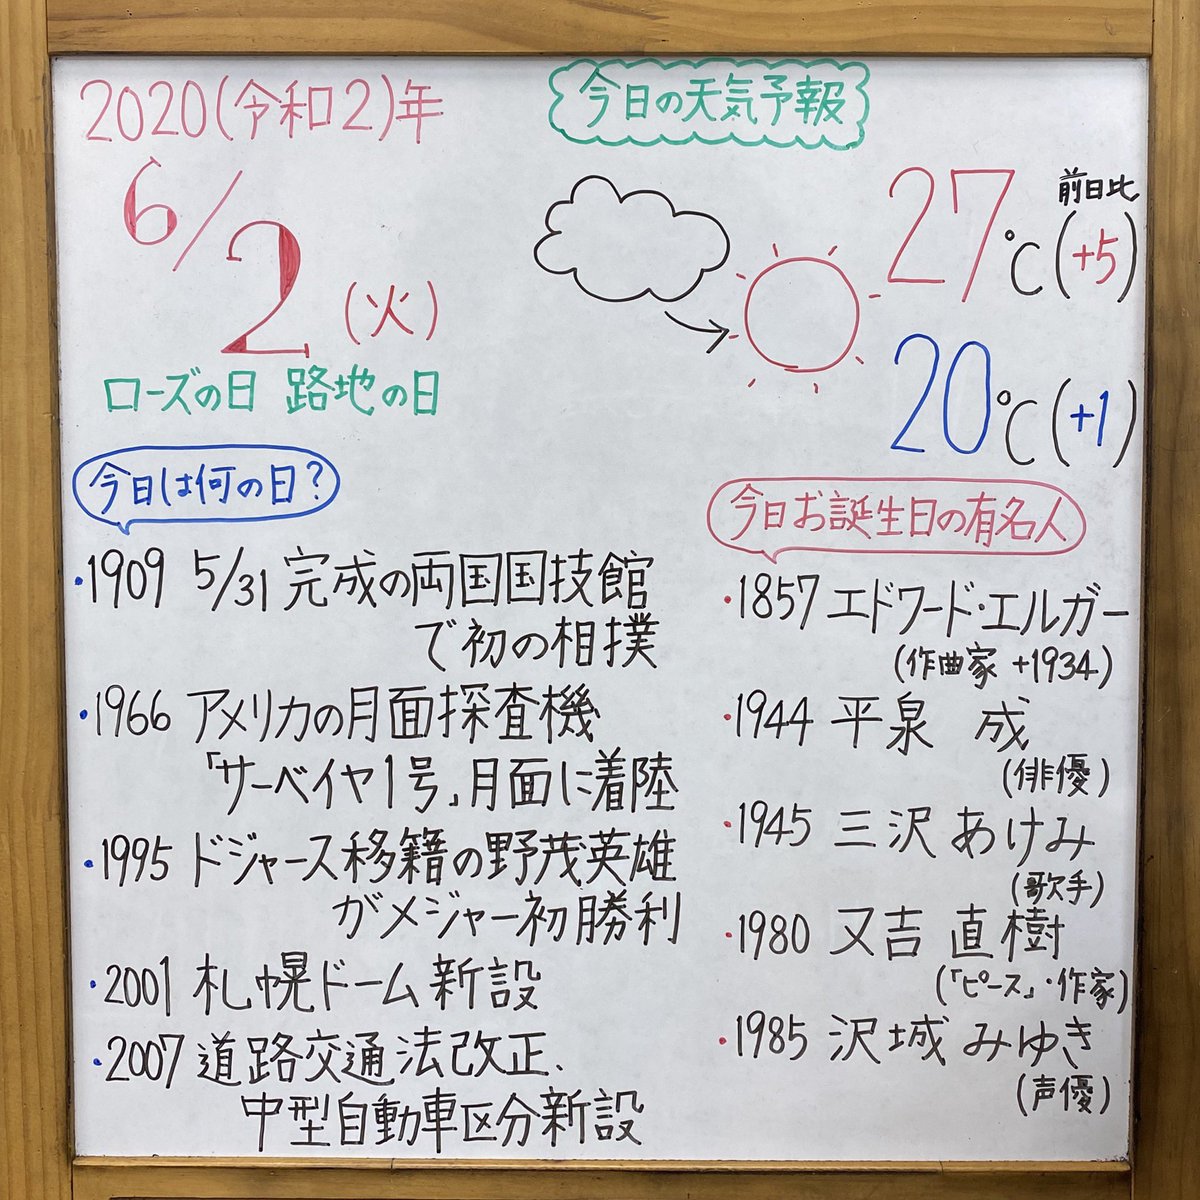 2020(令和2)年
6/2(火)
ローズの日 路地の日
今日の天気予報
前日比
27℃(+5)
20℃(+1)
今日は何の日?
・1909 5/31 完成の両国国技館
で初の相撲
・1966 アメリカの月面探査機
「サーベイヤ1号」月面に着陸
・1995 ドジャース移籍の野茂英雄
がメジャー初勝利
・2001 札幌ドーム新設
・2007 道路交通法改正、
中型自動車区分新設
今日お誕生日の有名人
・1857 エドワード・エルガー
(作曲家 +1934)
・1944 平泉 成
(俳優)
・1945 三沢 あけみ
(歌手)
・1980 又吉 直樹
(「ピース」・作家)
・1985 沢城 みゆき
(声優)